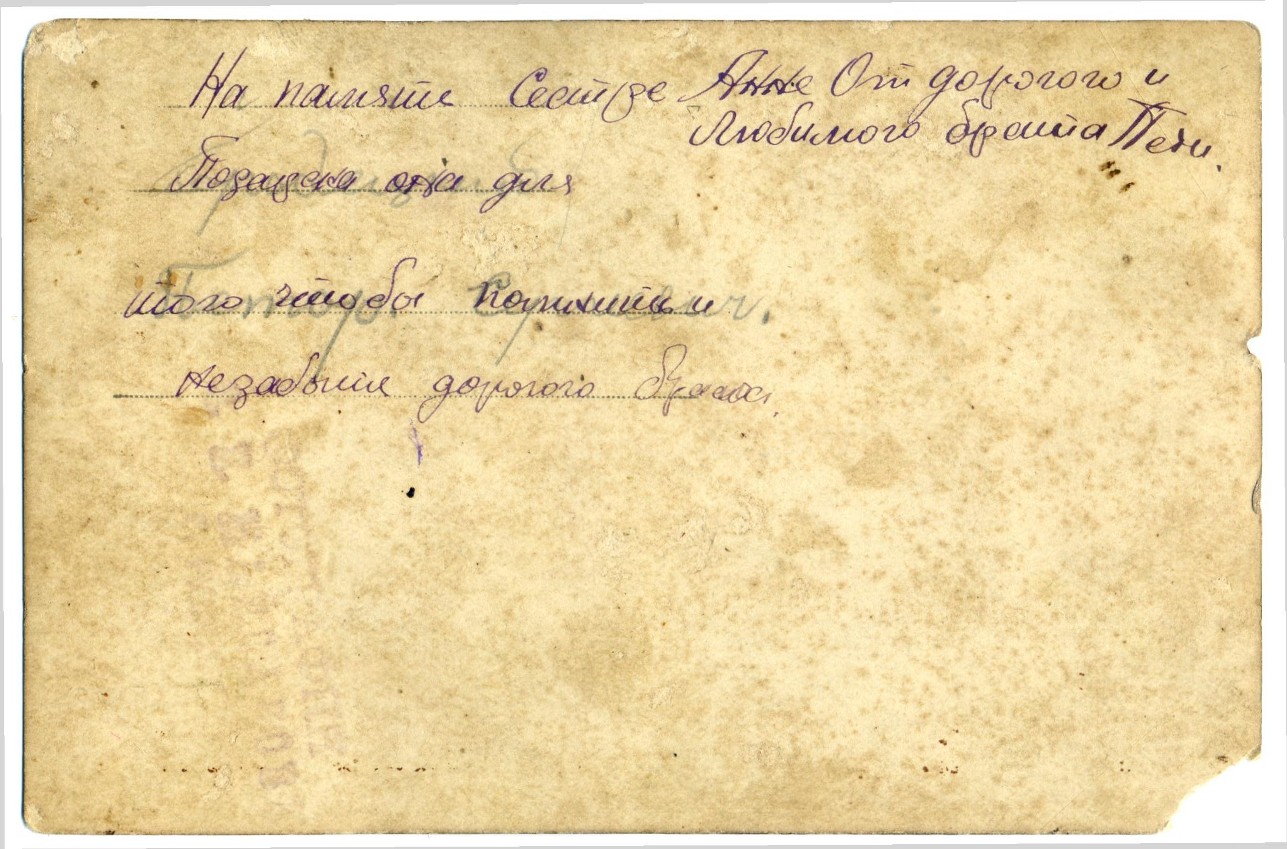 На памяти Сестре Анне От дорогого и
Любимого брата Пети.
она для
того чтобы памяти и
незабыти дорогого брата.